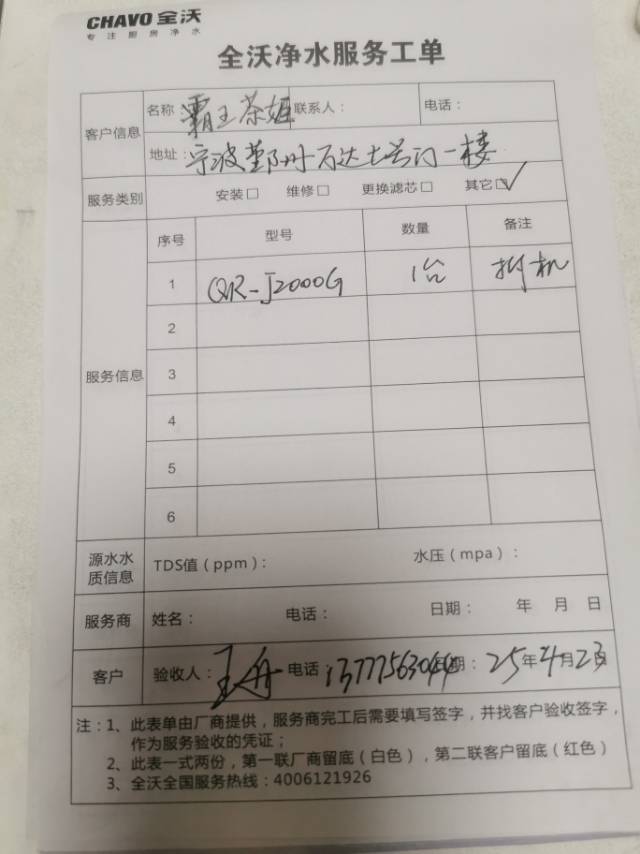 CHAVO 全沃
专注厨房净水
全沃净水服务工单
客户信息
名称 霸王茶姬 联系人： 电话：
地址：宁波鄞州万达七号门一楼
服务类别 安装□ 维修□ 更换滤芯□ 其它☑
服务信息
序号 型号 数量 备注
1 QR-J2000G 1台 拆机
2
3
4
5
6
源水水质信息 TDS值（ppm）： 水压（mpa）：
服务商 姓名： 电话： 日期： 年 月 日
客户 验收人：王丹 电话 13777563044 日期：25年4月23日
注：1、此表单由厂商提供，服务商完工后需要填写签字，并找客户验收签字，
作为服务验收的凭证；
2、此表一式两份，第一联厂商留底（白色），第二联客户留底（红色）
3、全沃全国服务热线：4006121926